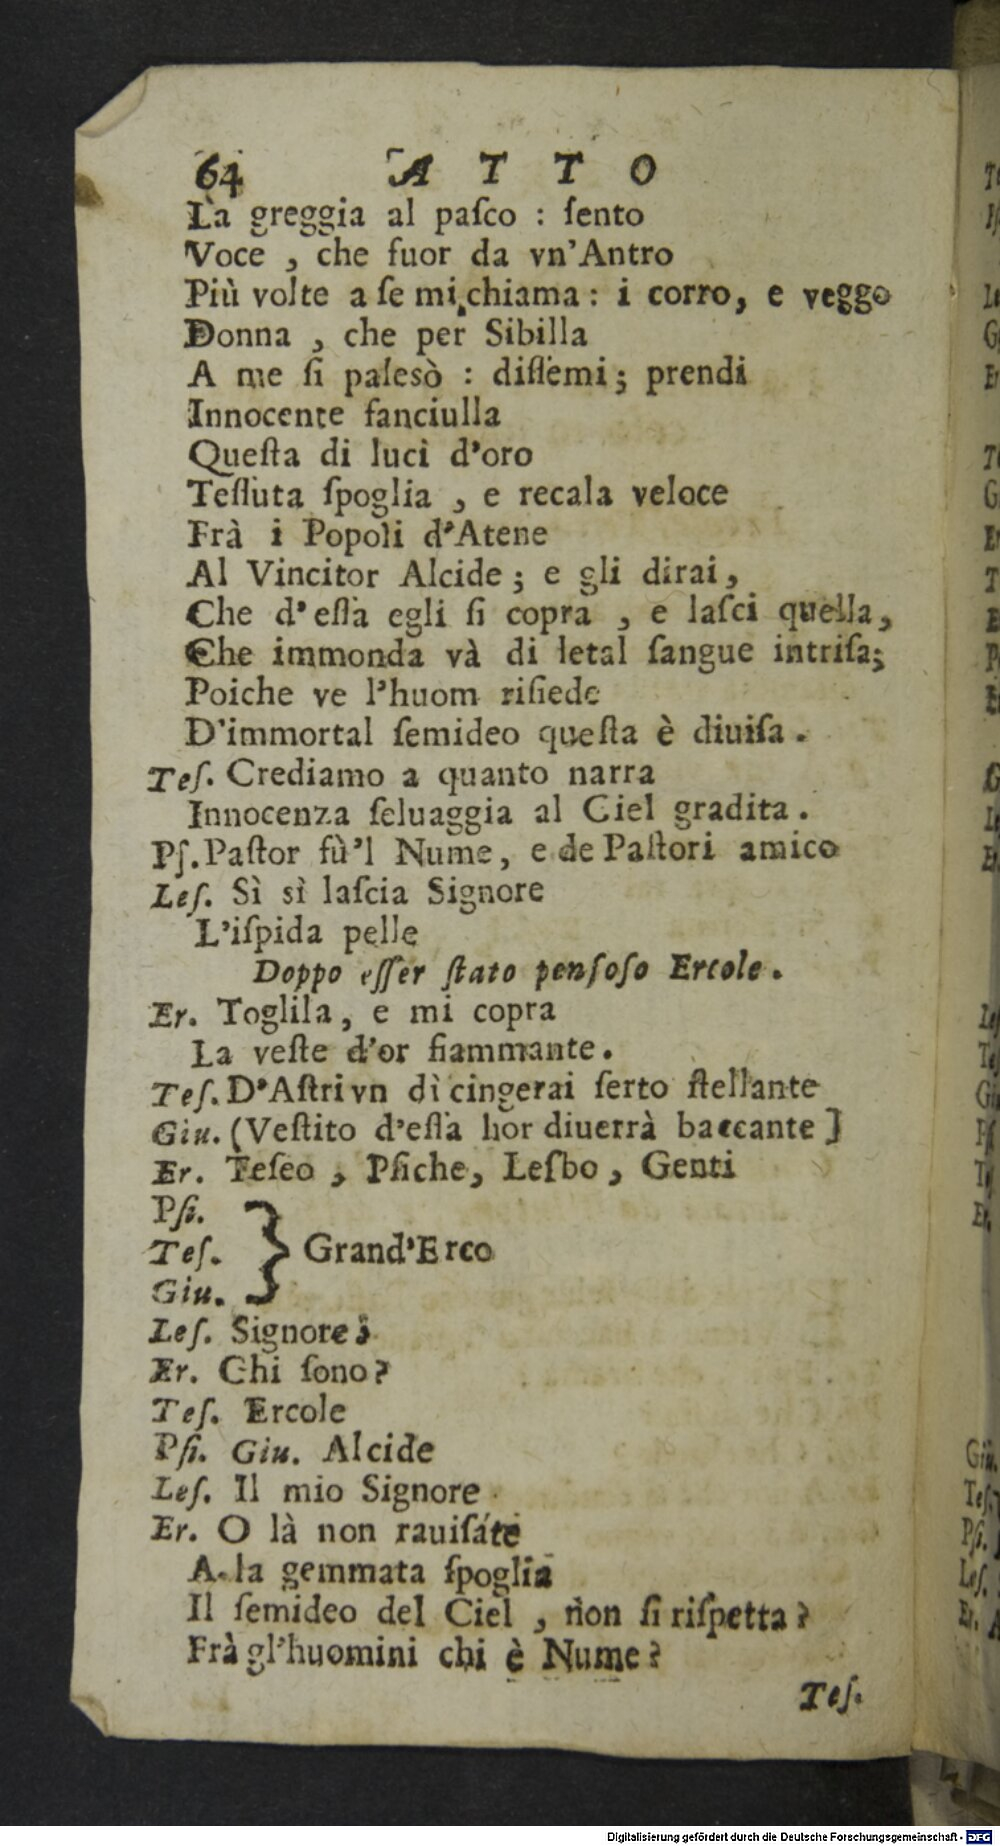 64 ATTO
La greggia al paſco : ſento
Voce , che fuor da vn'Antro
Più volte a ſe mi chiama : i corro, e veggo
Donna , che per Sibilla
A me ſi palesò : diſſemi ; prendi
Innocente fanciulla
Queſta di luci d'oro
Teſſuta ſpoglia , e recala veloce
Frà i Popoli d'Atene
Al Vincitor Alcide ; e gli dirai,
Che d'eſſa egli ſi copra , e laſci quella,
Che immonda và di letal ſangue intriſa;
Poiche ve l'huom riſiede
D'immortal ſemideo queſta è diuiſa .
Teſ. Crediamo a quanto narra
Innocenza ſeluaggia al Ciel gradita .
Pſ. Paſtor fù'l Nume, e de Paſtori amico
Leſ. Sì sì laſcia Signore
L'iſpida pelle
Doppo eſſer ſtato penſoſo Ercole .
Er. Toglila, e mi copra
La veſte d'or fiammante.
Teſ. D'Aſtri vn dì cingerai ſerto ſtellante
Giu. (Veſtito d'eſſa hor diuerrà baccante ]
Er. Teſeo , Pſiche, Leſbo , Genti
Pſi.
Teſ. } Grand'Erco
Giu.
Leſ. Signore ;
Er. Chi ſono?
Teſ. Ercole
Pſi. Giu. Alcide
Leſ. Il mio Signore
Er. O là non rauiſate
A la gemmata ſpoglia
Il ſemideo del Ciel , non ſi riſpetta?
Frà gl'huomini chi è Nume?
Teſ.
Digitalisierung gefördert durch die Deutsche Forschungsgemeinschaft - DFG